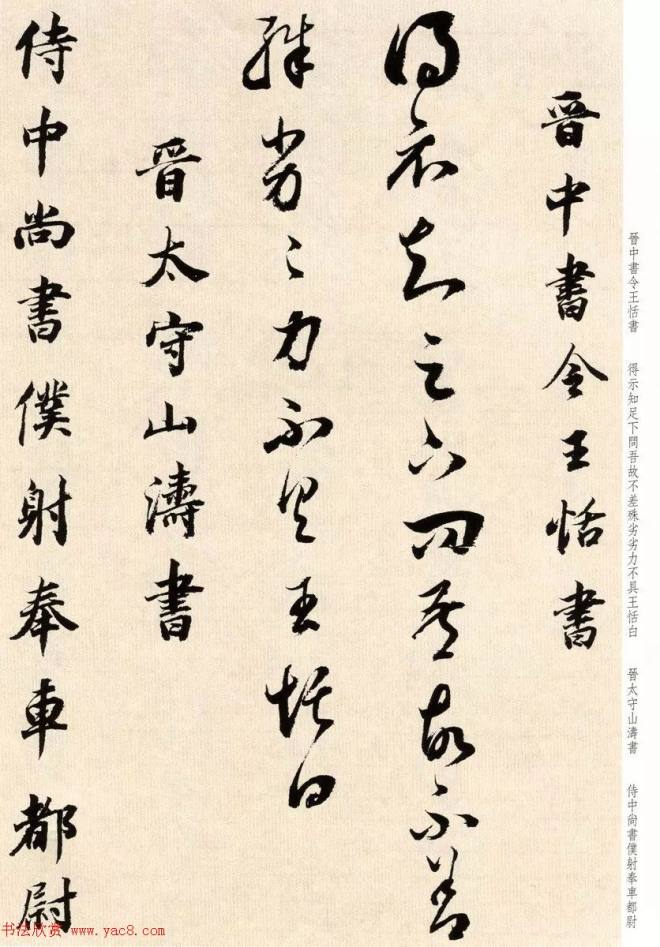 晉中書令王恬書
得示知足下問吾故不差
殊劣劣力不具王恬白
晉太守山濤書
侍中尚書僕射奉車都尉
晉中書令王恬書 得示知足下問吾故不差殊劣劣力不具王恬白 晉太守山濤書 侍中尚書僕射奉車都尉
书法欣赏 www.yac8.com